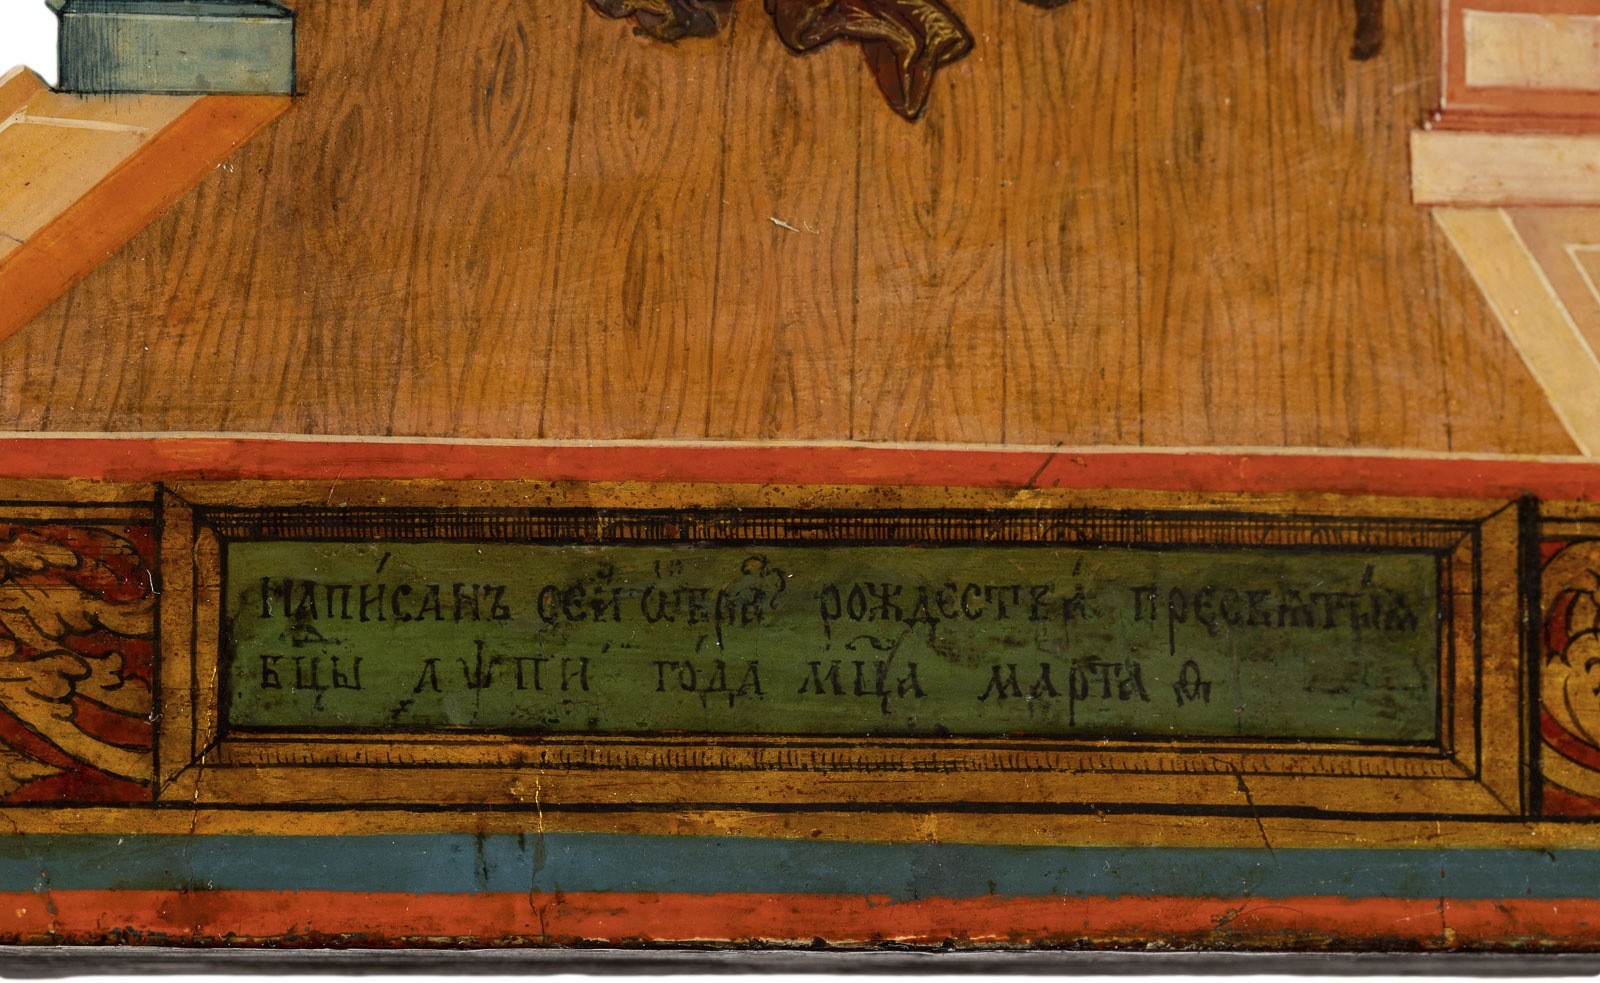 напи́санъ сей ѡ҆́браⷥ рождества̀ прест҃ы́ѧ
бцⷣы ҂аѱпи го́да мц҃а марта ѳ҃